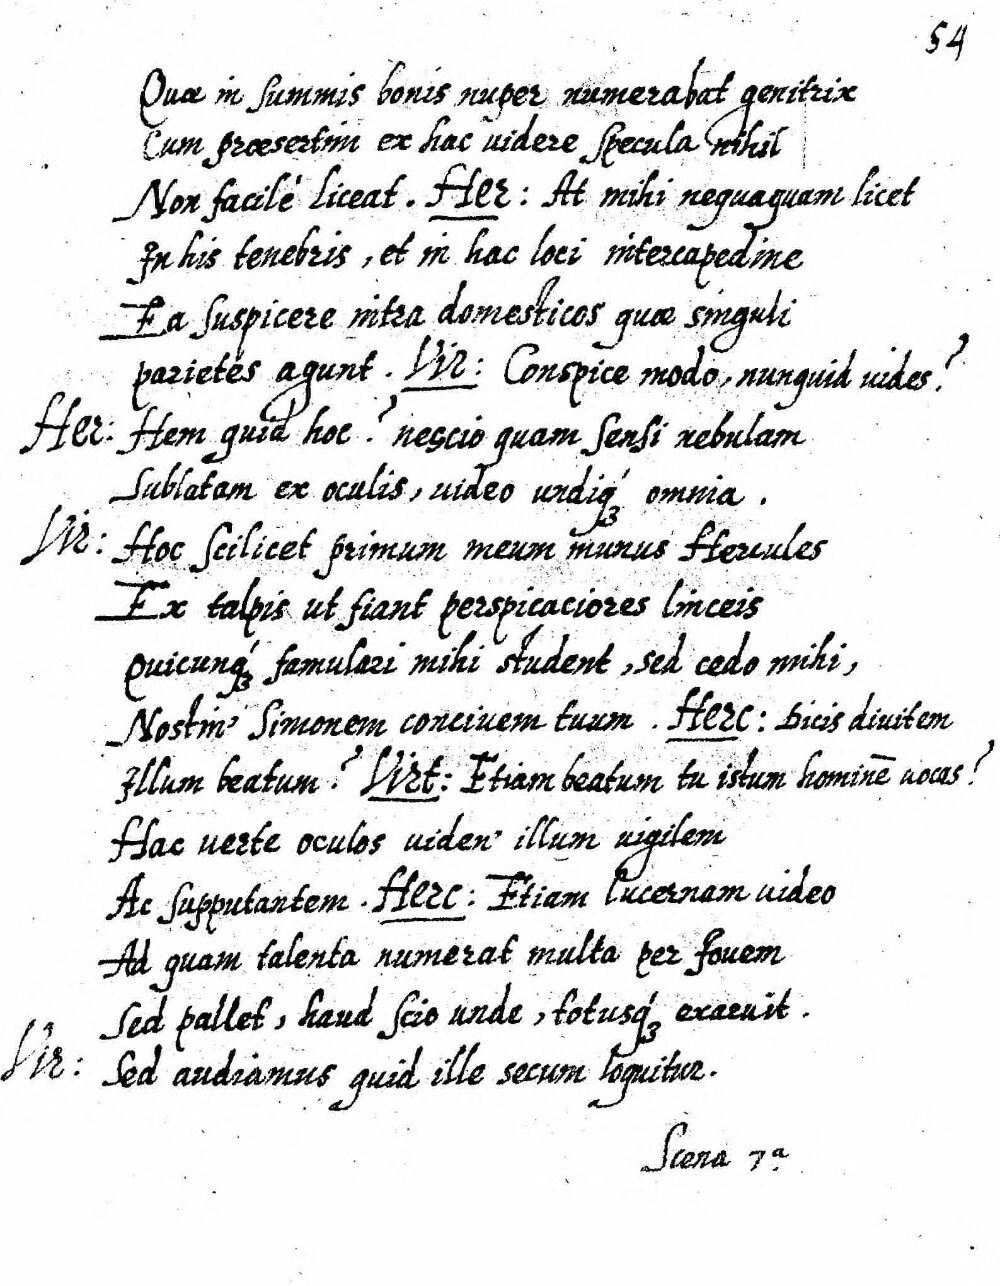 54
Quæ in summis bonis nuper numerabat genitrix
Cum præsertim ex hac uidere specula nihil
Non facilé liceat. Her: At mihi nequaquam licet
In his tenebris, et in hac loci intercapedine
Ea suspicere intra domesticos quæ singuli
parietes agunt. Vir: Conspice modo, nunquid uides?
Her: Hem quid hoc? nescio quam sensi nebulam
Sublatam ex oculis, uideo undiqꝫ omnia.
Vir: Hoc scilicet primum meum munus Hercules
Ex talpis ut fiant perspicaciores linceis
Quicunqꝫ famulari mihi student, sed cedo mihi,
Nostin' Simonem conciuem tuum. Herc: Dicis diuitem
Illum beatum? Virt: Etiam beatum tu istum hominē uocas?
Hac uerte oculos uiden' illum uigilem
Ac supputantem. Herc: Etiam lucernam uideo
Ad quam talenta numerat multa per Iouem
Sed pallet, haud scio unde, totusqꝫ exaruit.
Vir: Sed audiamus quid ille secum loquitur.
Scena 7ª